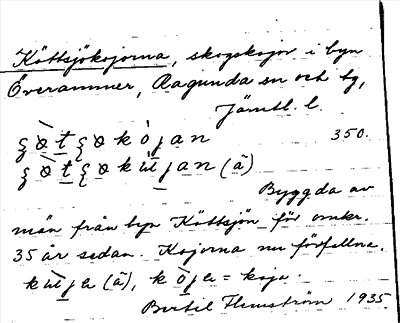 Köttsjökojorna, skogskojor i byn
Överammer, Ragunda sn och tg,
Jämtl. l.
350.
Byggda av
män från byn Köttsjön för omkr.
35 år sedan. Kojorna nu förfallna.
= koja.
Bertil Flemström 1935